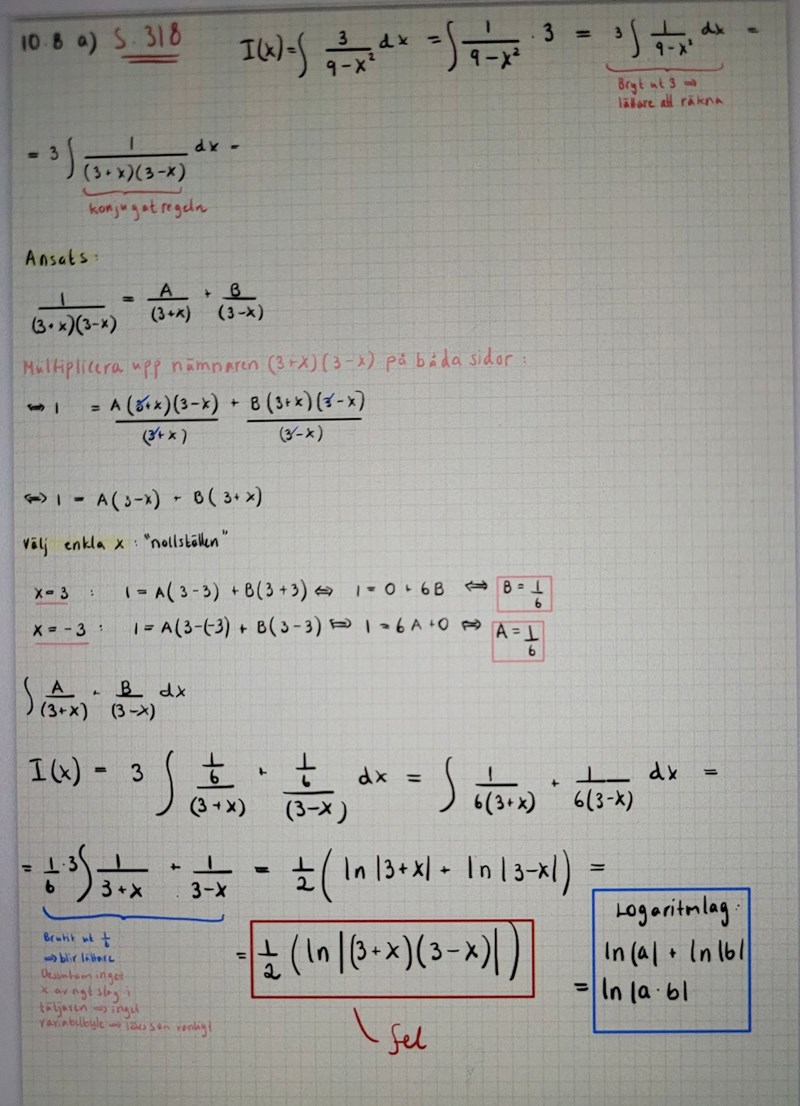 10.8 a) S. 318 I(x) = ∫ 3/(9-x²) dx = ∫ 1/(9-x²) · 3 = 3 ∫ 1/(9-x²) dx =
Bryt ut 3 ⇒
lättare att räkna
= 3 ∫ 1/((3+x)(3-x)) dx =
konjugatregeln
Ansats:
1/((3+x)(3-x)) = A/(3+x) + B/(3-x)
Multiplicera upp nämnaren (3+x)(3-x) på båda sidor:
⇔ 1 = A(3+x)(3-x)/(3+x) + B(3+x)(3-x)/(3-x)
⇔ 1 = A(3-x) + B(3+x)
Välj enkla x: "nollställen"
x=3 : 1 = A(3-3) + B(3+3) ⇔ 1 = 0 + 6B ⇔ B = 1/6
x = -3 : 1 = A(3-(-3) + B(3-3) ⇔ 1 = 6A + 0 ⇔ A = 1/6
∫ A/(3+x) + B/(3-x) dx
I(x) = 3 ∫ (1/6)/(3+x) + (1/6)/(3-x) dx = ∫ 1/(6(3+x)) + 1/(6(3-x)) dx =
= 1/6 · 3 ∫ 1/(3+x) + 1/(3-x) = 1/2 ( ln |3+x| + ln |3-x| ) =
Brutit ut 1/6
⇒ blir lättare
Dessutom inget
x av ngt slag i
täljaren ⇒ inget
variabelbyte ⇒ löses som vanligt
= 1/2 ( ln |(3+x)(3-x)| )
fel
Logaritmlag:
ln|a| + ln|b|
= ln|a·b|